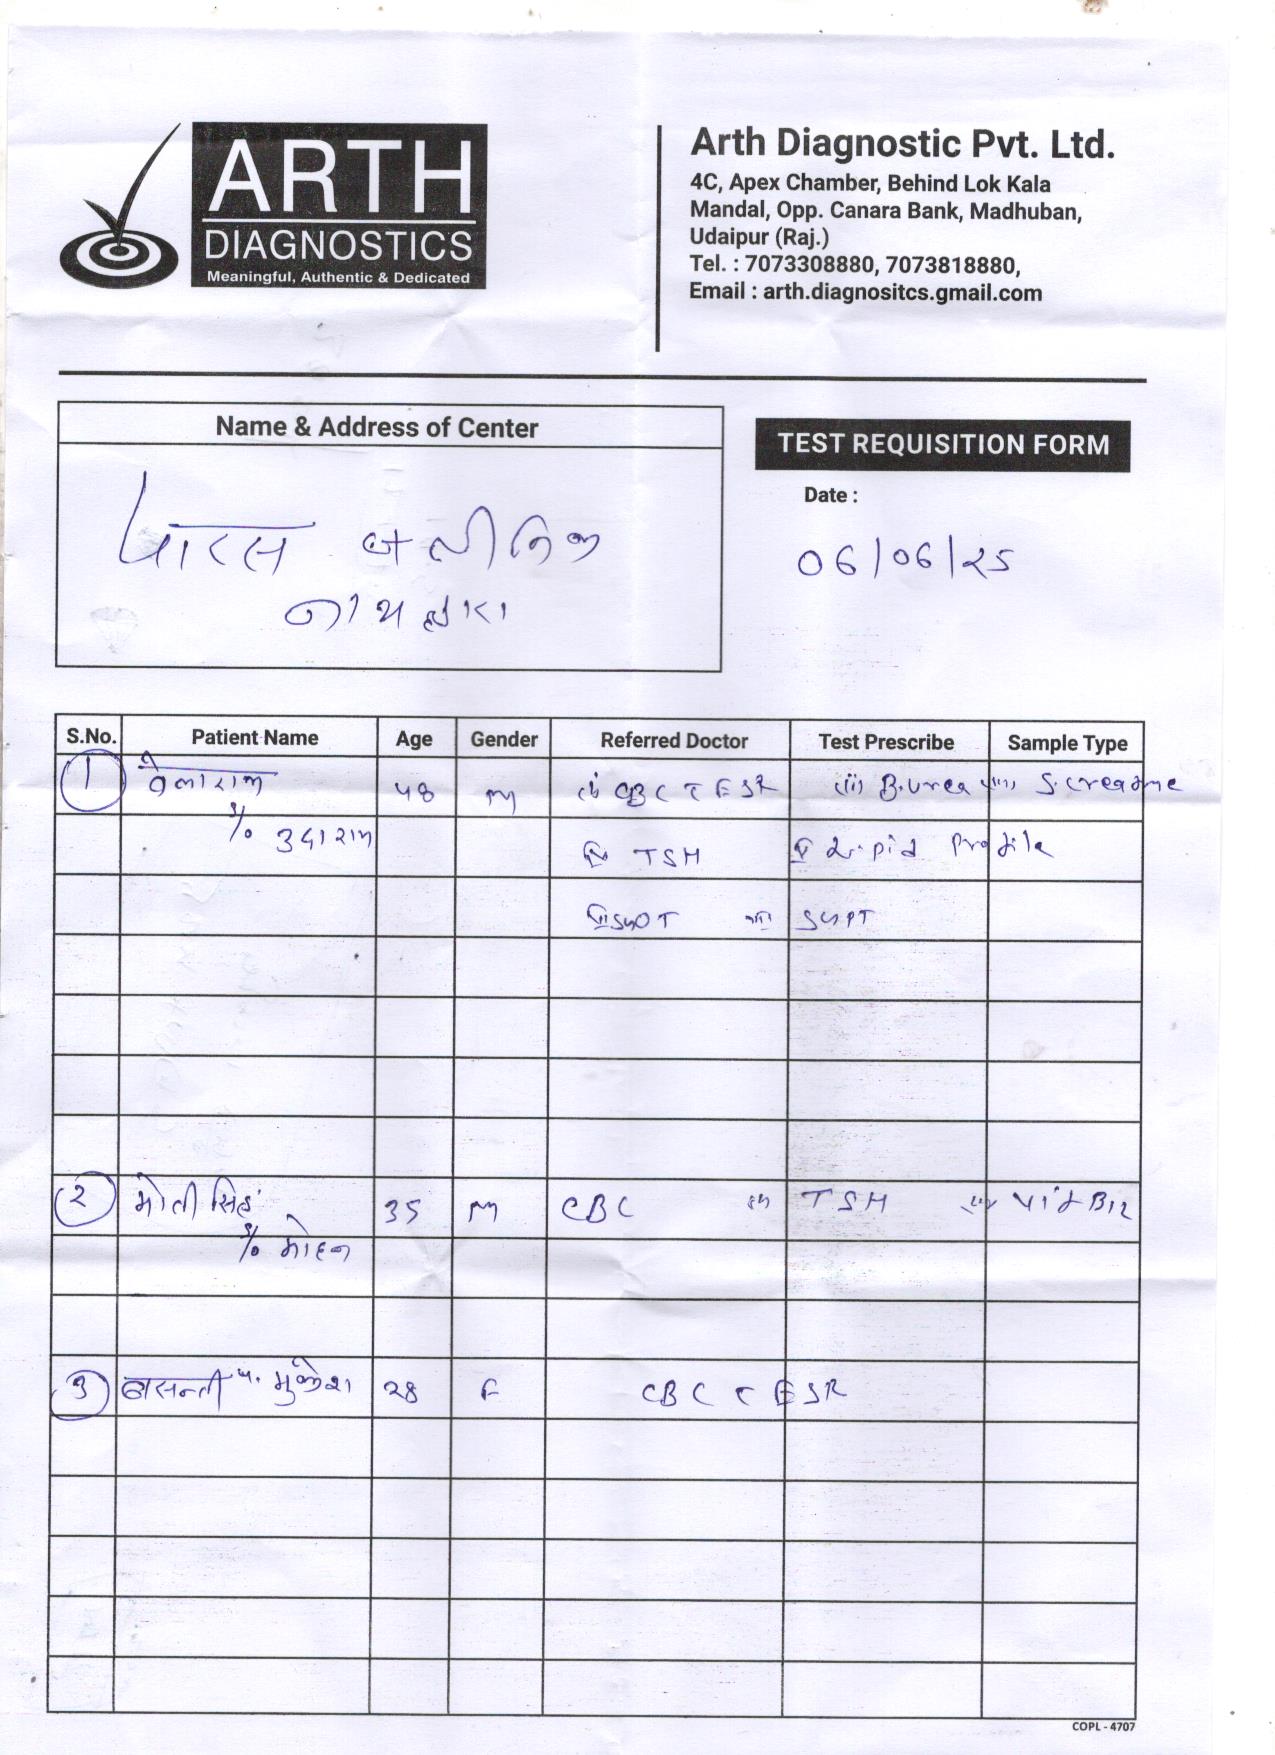 ARTH
DIAGNOSTICS
Meaningful, Authentic & Dedicated
Arth Diagnostic Pvt. Ltd.
4C, Apex Chamber, Behind Lok Kala
Mandal, Opp. Canara Bank, Madhuban,
Udaipur (Raj.)
Tel. : 7073308880, 7073818880,
Email : arth.diagnositcs.gmail.com
Name & Address of Center
पारस क्लीनिक
TEST REQUISITION FORM
Date :
06/06/25
S.No. Patient Name Age Gender Referred Doctor Test Prescribe Sample Type
1 वेलाराम 48 M (i) CBC ESR (ii) B.urea (iii) S.creatine
S/o उदाराम TSH Lipid Profile
SGOT SGPT
2 मोती सिंह 35 M CBC (ii) TSH (iii) Vit B12
S/o मोहन
3 बसन्ती प. मुकेश 28 F CBC ESR
COPL - 4707